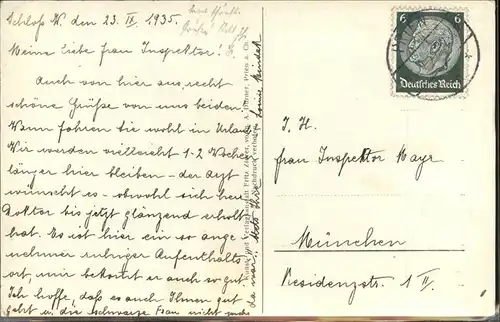 Schloss W. den 23. IX. 1935.
Meine liebe Frau Inspektor!
Auch von hier aus recht
schöne Grüße von uns beiden.
Wann fahren Sie wohl in Urlaub
Wir werden vielleicht 1-2 Wochen
länger hier bleiben - der Arzt
wünscht es - obwohl sich Herr
Doktor bis jetzt glänzend erholt
hat. Es ist hier ein so ange
nehmer ruhiger Aufenthalts
ort, mir bekommt er auch so gut.
Ich hoffe, daß es auch Ihnen gut
geht u. die schwarze Frau nicht
6 6
Deutsches Reich
I. H.
Frau Inspektor Mayr
München
Residenzstr. 1 II.